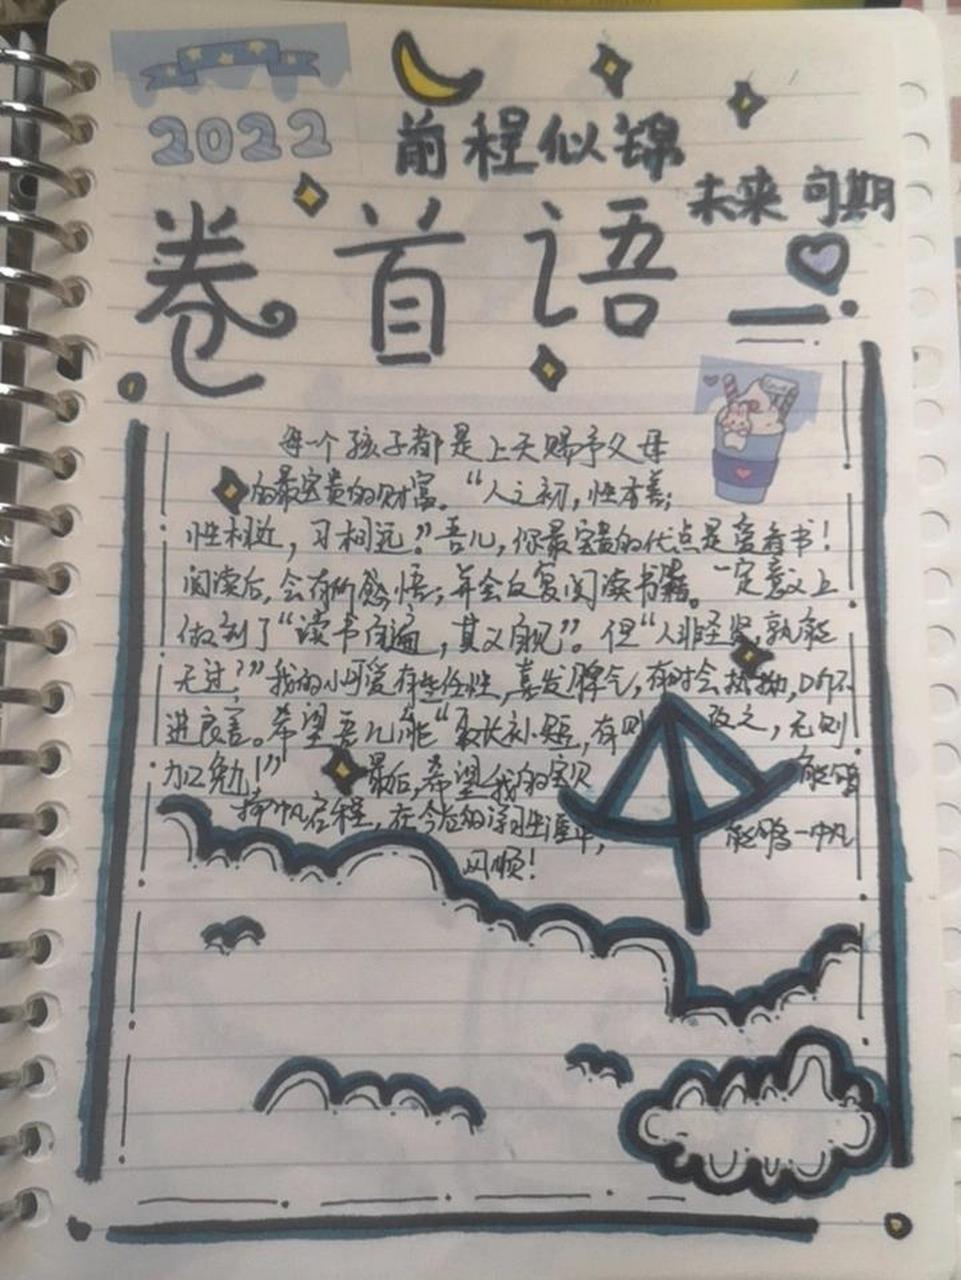 2022
前程似锦
未来可期
卷首语
每一个孩子都是上天赐予父母
的最宝贵的财富。“人之初，性本善；
性相近，习相远。”吾儿，你最宝贵的优点是爱看书！
阅读后，会有所感悟；并会反复阅读书籍。一定意义上
做到了“读书百遍，其义自现”。但“人非圣贤，孰能
无过？”我的小可爱有些任性，喜发脾气，有时会执拗，
进良言。希望吾儿能“取长补短，有则改之，无则
加勉！”最后，希望我的宝贝能够
扬帆启程，在今后的学习生涯中，能够一帆
风顺！